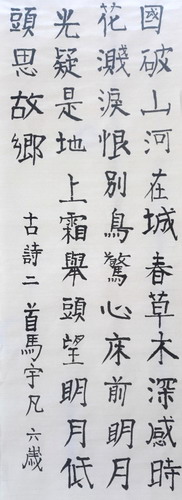 國破山河在城春草木深感時
花濺淚恨別鳥驚心床前明月
光疑是地上霜舉頭望明月低
頭思故鄉
古詩二首馬宇凡六歲